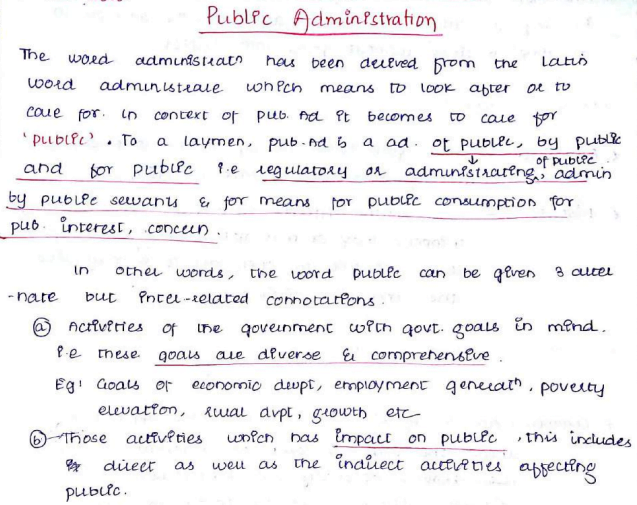 Public Administration
The word administratn has been derived from the latin
word administrare which means to look after or to
care for. in context of pub. Ad it becomes to care for
'public'. To a laymen, pub. Ad is a ad. of public, by public
and for public i.e regulatory or administrating, of public admin
by public servants & for means for public consumption for
pub. interest, concern.
In other words, the word public can be given 3 alter
-nate but inter-related connotations.
(a) Activities of the government with govt. goals in mind.
i.e these goals are diverse & comprehensive.
Eg: Goals of economic devpt, employment generatn, poverty
elevation, rural dvpt, growth etc
(b) Those activities which has impact on public, this includes
direct as well as the indirect activities affecting
public.